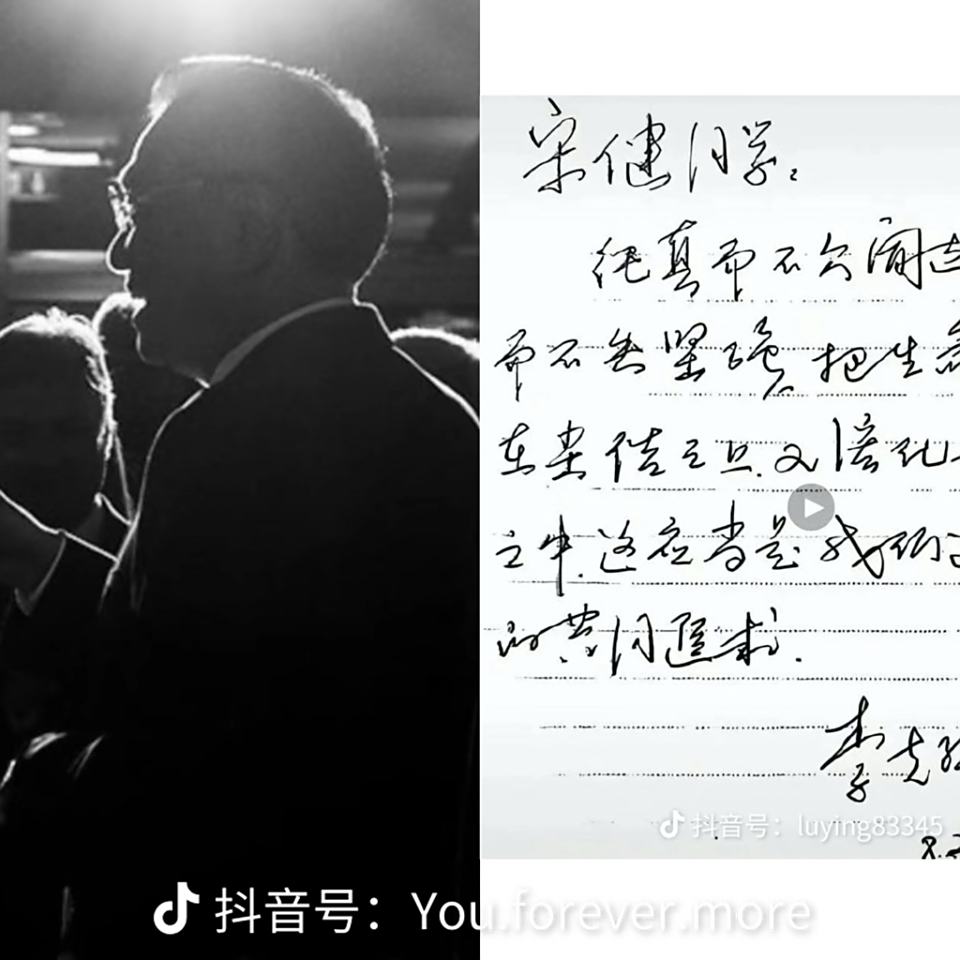 宋健同学：
纯真而不
而不失坚强 把生
又溶化
之中.这应当是我们
的共同追求.
李克
抖音号：luying83345
抖音号：You.forever.more